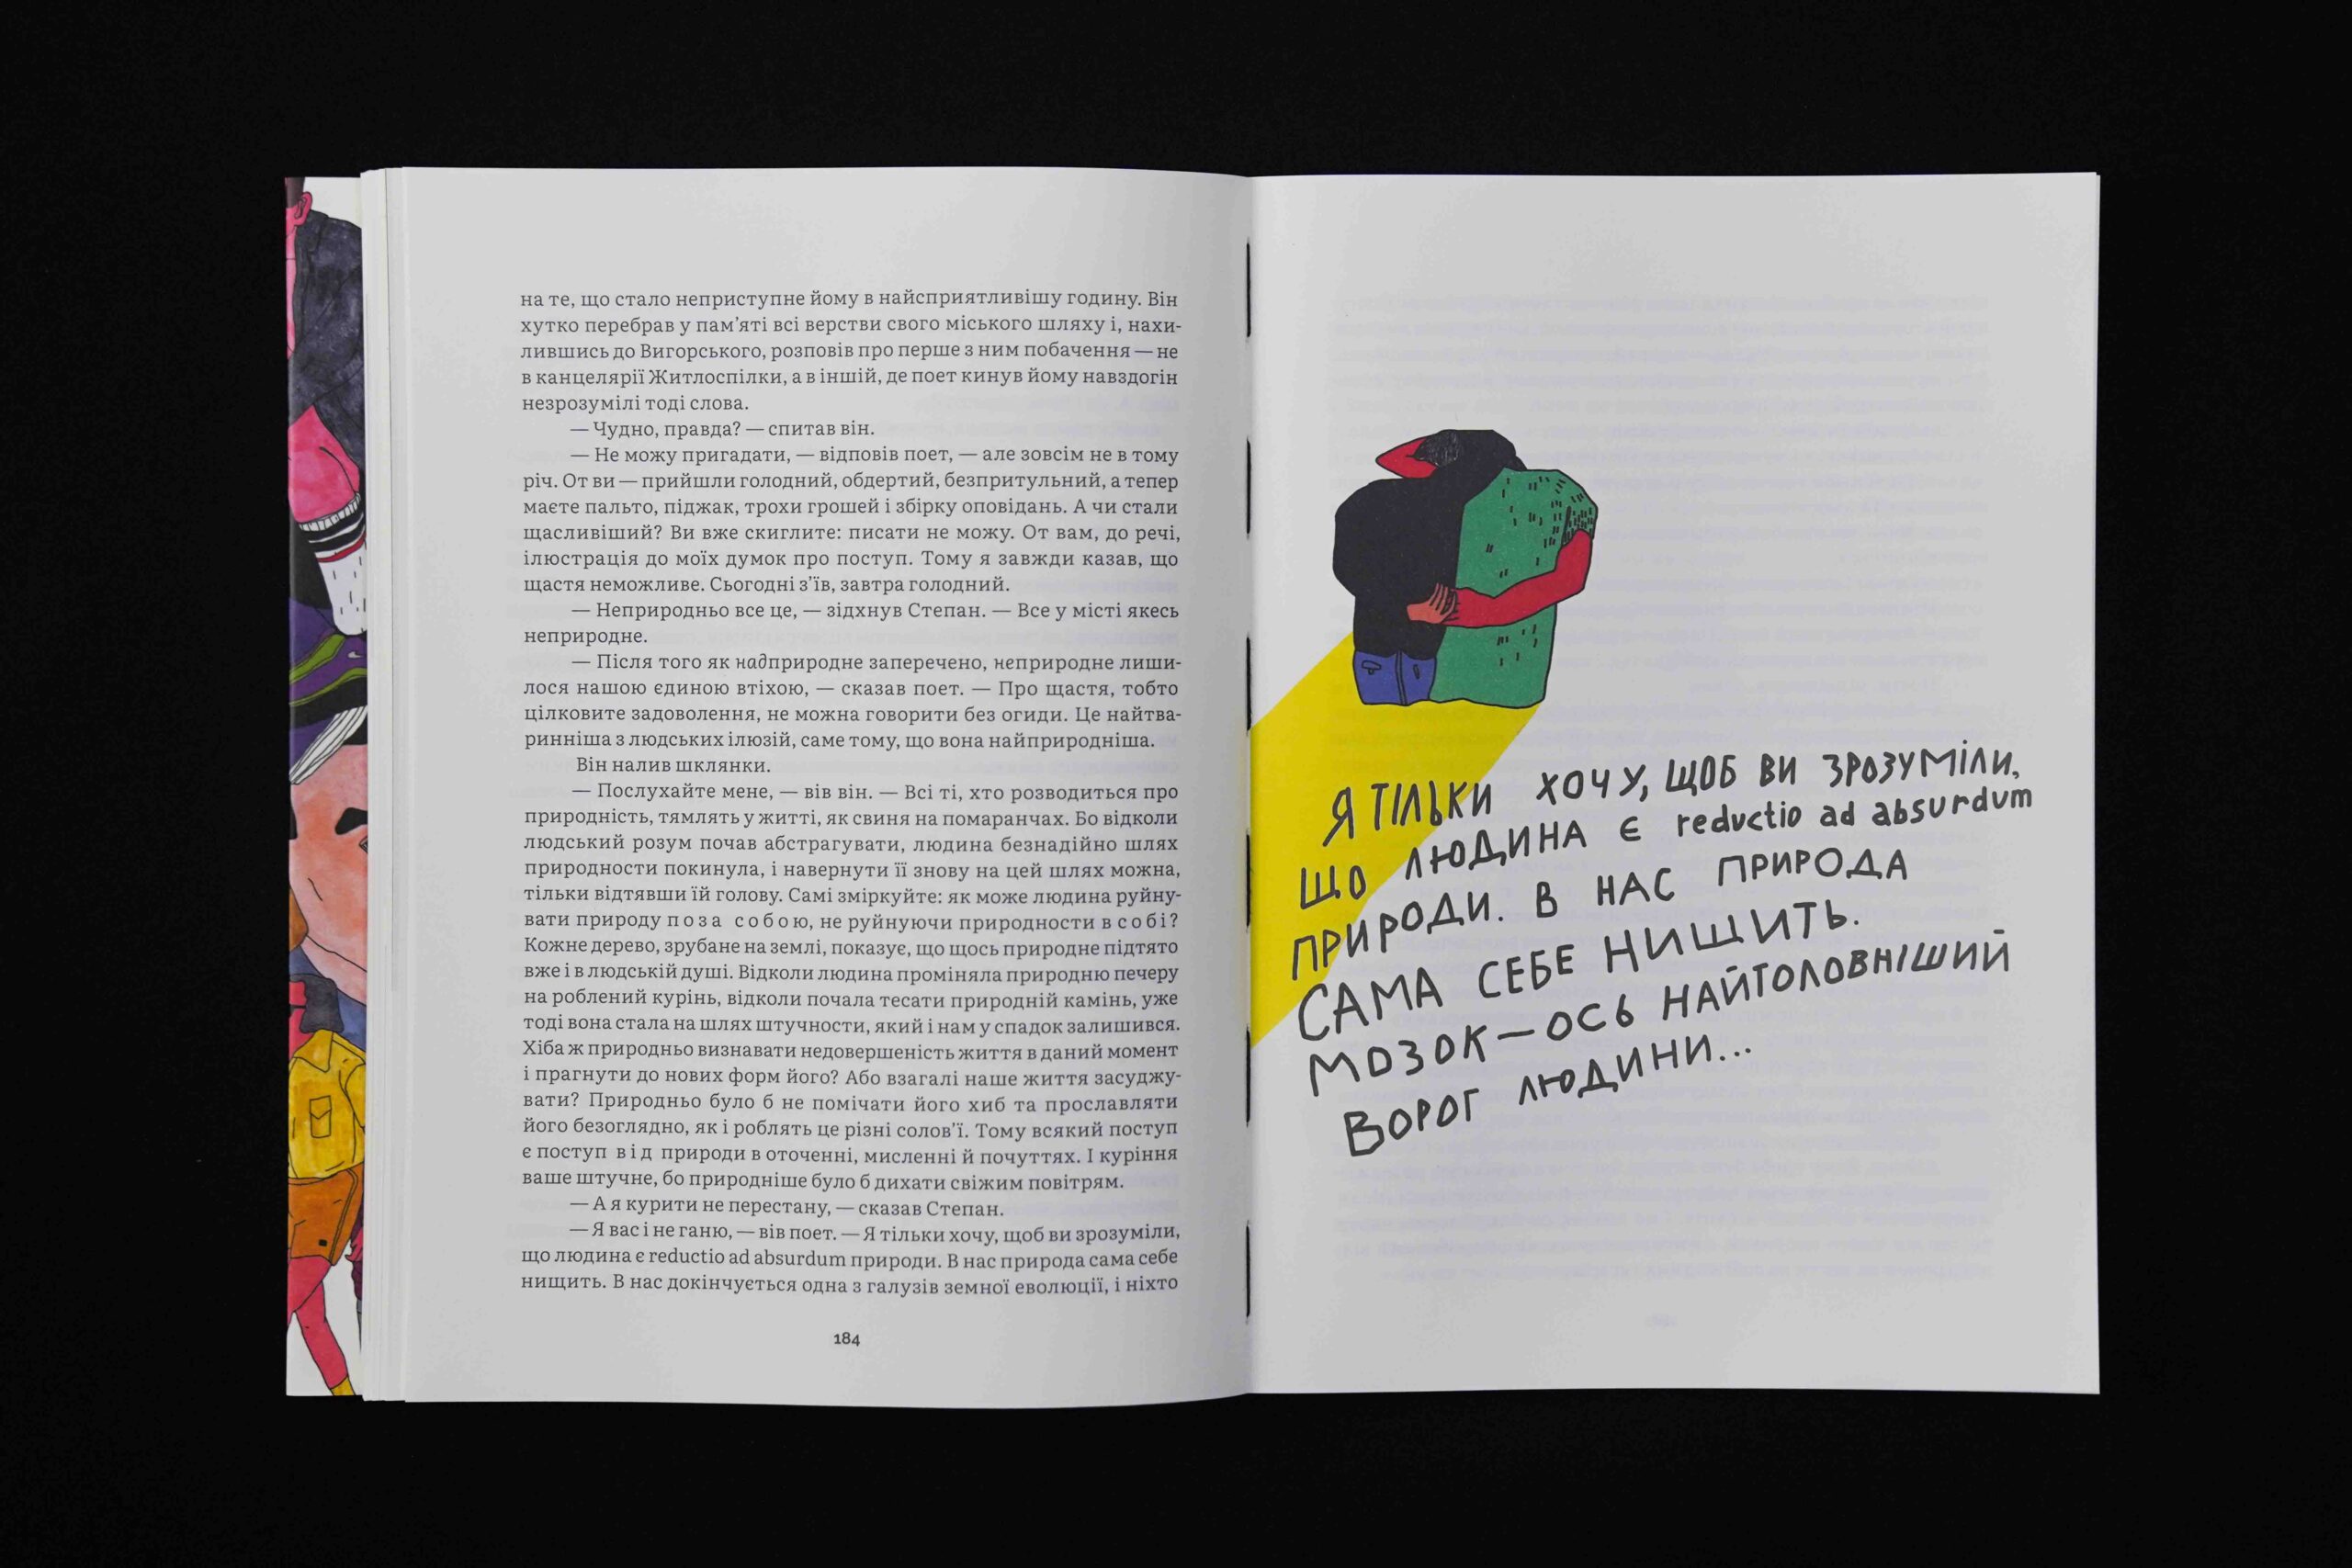 на те, що стало неприступне йому в найсприятливішу годину. Він
хутко перебрав у пам’яті всі верстви свого міського шляху і, нахи-
лившись до Вигорського, розповів про перше з ним побачення — не
в канцелярії Житлоспілки, а в іншій, де поет кинув йому навздогін
незрозумілі тоді слова.
— Чудно, правда? — спитав він.
— Не можу пригадати, — відповів поет, — але зовсім не в тому
річ. От ви — прийшли голодний, обдертий, безпритульний, а тепер
маєте пальто, піджак, трохи грошей і збірку оповідань. А чи стали
щасливіший? Ви вже скиглите: писати не можу. От вам, до речі,
ілюстрація до моїх думок про поступ. Тому я завжди казав, що
щастя неможливе. Сьогодні з’їв, завтра голодний.
— Неприродньо все це, — зідхнув Степан. — Все у місті якесь
неприродне.
— Після того як надприродне заперечено, неприродне лиши-
лося нашою єдиною втіхою, — сказав поет. — Про щастя, тобто
цілковите задоволення, не можна говорити без огиди. Це найтва-
ринніша з людських ілюзій, саме тому, що вона найприродніша.
Він налив шклянки.
— Послухайте мене, — вів він. — Всі ті, хто розводиться про
природність, тямлять у житті, як свиня на помаранчах. Бо відколи
людський розум почав абстрагувати, людина безнадійно шлях
природности покинула, і навернути її знову на цей шлях можна,
тільки відтявши їй голову. Самі зміркуйте: як може людина руйну-
вати природу поза собою, не руйнуючи природности в собі?
Кожне дерево, зрубане на землі, показує, що щось природне підтято
вже і в людській душі. Відколи людина проміняла природню печеру
на роблений курінь, відколи почала тесати природній камінь, уже
тоді вона стала на шлях штучности, який і нам у спадок залишився.
Хіба ж природньо визнавати недовершеність життя в даний момент
і прагнути до нових форм його? Або взагалі наше життя засуджу-
вати? Природньо було б не помічати його хиб та прославляти
його безоглядно, як і роблять це різні солов’ї. Тому всякий поступ
є поступ від природи в оточенні, мисленні й почуттях. І куріння
ваше штучне, бо природніше було б дихати свіжим повітрям.
— А я курити не перестану, — сказав Степан.
— Я вас і не ганю, — вів поет. — Я тільки хочу, щоб ви зрозуміли,
що людина є reductio ad absurdum природи. В нас природа сама себе
нищить. В нас докінчується одна з галузів земної еволюції, і ніхто
184
Я ТІЛЬКИ ХОЧУ, ЩОБ ВИ ЗРОЗУМІЛИ,
ЩО ЛЮДИНА Є reductio ad absurdum
ПРИРОДИ. В НАС ПРИРОДА
САМА СЕБЕ НИЩИТЬ.
МОЗОК — ОСЬ НАЙГОЛОВНІШИЙ
ВОРОГ ЛЮДИНИ...